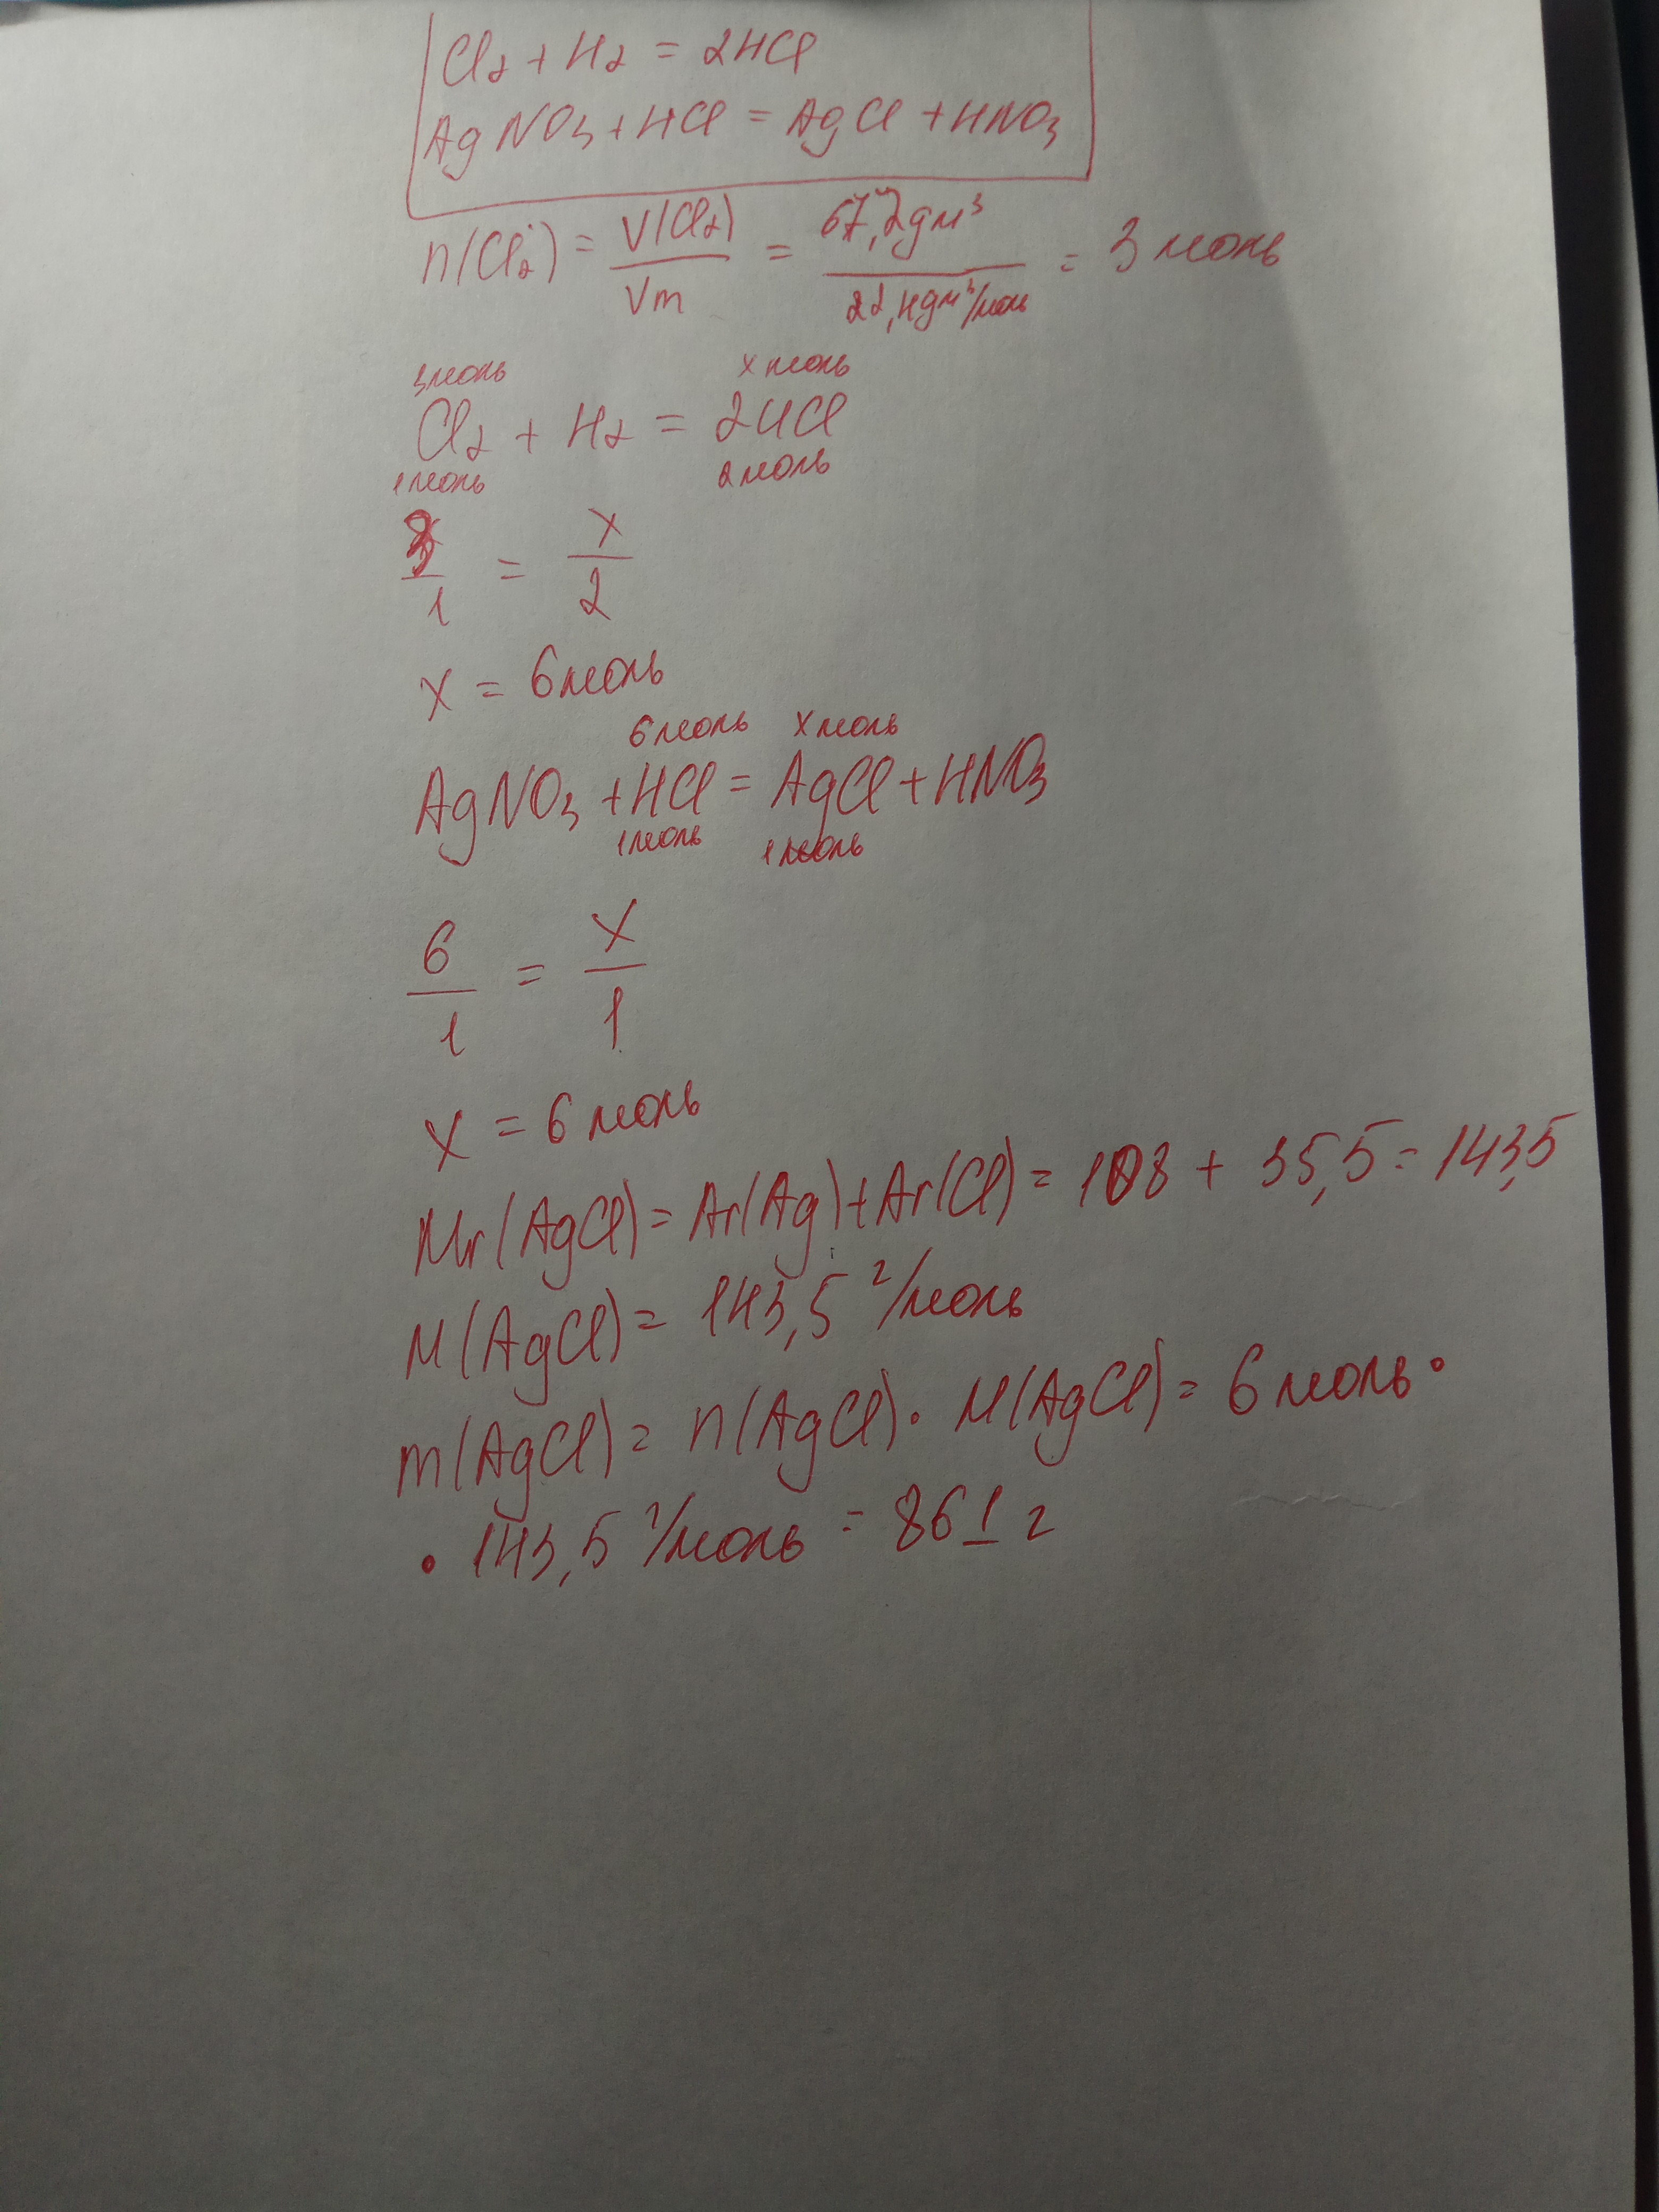 Cl₂ + H₂ = 2HCl
AgNO₃ + HCl = AgCl + HNO₃
n(Cl₂) = V(Cl₂) / Vm = 67,2 дм³ / 22,4 дм³/моль = 3 моль
3 моль x моль
Cl₂ + H₂ = 2HCl
1 моль 2 моль
3/1 = x/2
x = 6 моль
6 моль x моль
AgNO₃ + HCl = AgCl + HNO₃
1 моль 1 моль
6/1 = x/1
x = 6 моль
Mr(AgCl) = Ar(Ag) + Ar(Cl) = 108 + 35,5 = 143,5
M(AgCl) = 143,5 г/моль
m(AgCl) = n(AgCl) · M(AgCl) = 6 моль ·
· 143,5 г/моль = 861 г